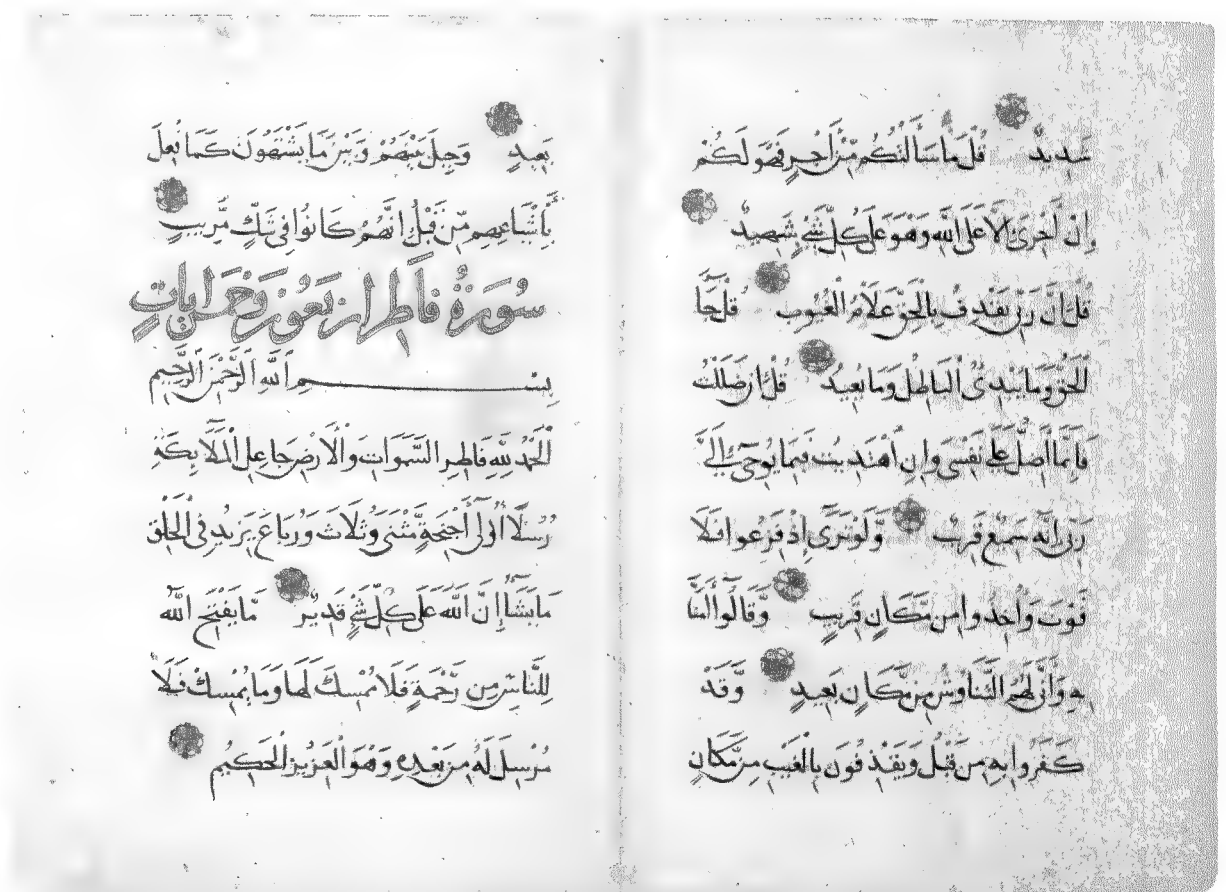 شَدِيدٍ قُلْ مَا سَأَلْتُكُم مِّنْ أَجْرٍ فَهُوَ لَكُمْ
إِنْ أَجْرِيَ إِلَّا عَلَى اللَّهِ وَهُوَ عَلَى كُلِّ شَيْءٍ شَهِيدٌ
قُلْ إِنَّ رَبِّي يَقْذِفُ بِالْحَقِّ عَلَّامُ الْغُيُوبِ قُلْ جَا
الْحَقُّ وَمَا يُبْدِئُ الْبَاطِلُ وَمَا يُعِيدُ قُلْ إِن ضَلَلْتُ
فَإِنَّمَا أَضِلُّ عَلَى نَفْسِي وَإِنِ اهْتَدَيْتُ فَبِمَا يُوحِي إِلَيَّ
رَبِّي إِنَّهُ سَمِيعٌ قَرِيبٌ وَلَوْ تَرَى إِذْ فَزِعُوا فَلَا
فَوْتَ وَأُخِذُوا مِن مَّكَانٍ قَرِيبٍ وَقَالُوا آمَنَّا
بِهِ وَأَنَّى لَهُمُ التَّنَاوُشُ مِن مَّكَانٍ بَعِيدٍ وَقَدْ
كَفَرُوا بِهِ مِن قَبْلُ وَيَقْذِفُونَ بِالْغَيْبِ مِن مَّكَانٍ
بَعِيدٍ وَحِيلَ بَيْنَهُمْ وَبَيْنَ مَا يَشْتَهُونَ كَمَا فُعِلَ
بِأَشْيَاعِهِم مِّن قَبْلُ إِنَّهُمْ كَانُوا فِي شَكٍّ مُّرِيبٍ
سُورَةُ فَاطِر اربعون وخمس ايات
بِسْمِ اللَّهِ الرَّحْمَنِ الرَّحِيمِ
الْحَمْدُ لِلَّهِ فَاطِرِ السَّمَوَاتِ وَالْأَرْضِ جَاعِلِ الْمَلَائِكَةِ
رُسُلًا أُولِي أَجْنِحَةٍ مَّثْنَى وَثُلَاثَ وَرُبَاعَ يَزِيدُ فِي الْخَلْقِ
مَا يَشَاءُ إِنَّ اللَّهَ عَلَى كُلِّ شَيْءٍ قَدِيرٌ مَّا يَفْتَحِ اللَّهُ
لِلنَّاسِ مِن رَّحْمَةٍ فَلَا مُمْسِكَ لَهَا وَمَا يُمْسِكْ فَلَا
مُرْسِلَ لَهُ مِن بَعْدِهِ وَهُوَ الْعَزِيزُ الْحَكِيمُ